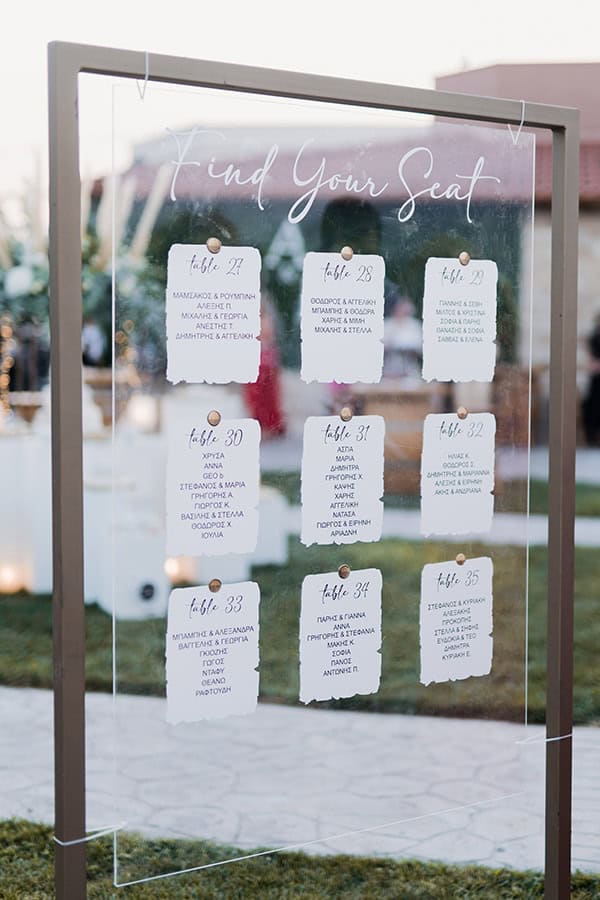 Find Your Seat
table 27
ΜΑΜΣΑΚΟΣ & ΡΟΥΜΠΙΝΗ
ΑΛΕΞΗΣ Π.
ΜΙΧΑΛΗΣ & ΓΕΩΡΓΙΑ
ΑΝΕΣΤΗΣ Τ.
ΔΗΜΗΤΡΗΣ & ΑΓΓΕΛΙΚΗ
table 28
ΘΟΔΩΡΟΣ & ΑΓΓΕΛΙΚΗ
ΜΠΑΜΠΗΣ & ΘΟΔΩΡΑ
ΧΑΡΗΣ & ΜΙΜΗ
ΜΙΧΑΛΗΣ & ΣΤΕΛΛΑ
table 29
ΓΙΑΝΝΗΣ & ΣΕΒΗ
ΜΙΛΤΟΣ & ΧΡΙΣΤΙΝΑ
ΣΟΦΙΑ & ΠΑΡΗΣ
ΘΑΝΑΣΗΣ & ΣΟΦΙΑ
ΣΑΒΒΑΣ & ΕΛΕΝΑ
table 30
ΧΡΥΣΑ
ΑΝΝΑ
GEO b
ΣΤΕΦΑΝΟΣ & ΜΑΡΙΑ
ΓΡΗΓΟΡΗΣ Α.
ΓΙΩΡΓΟΣ Κ.
ΒΑΣΙΛΗΣ & ΣΤΕΛΛΑ
ΘΟΔΩΡΟΣ Χ.
ΙΟΥΛΙΑ
table 31
ΑΣΠΑ
ΜΑΡΙΑ
ΔΗΜΗΤΡΑ
ΓΡΗΓΟΡΗΣ Χ
ΚΑΨΗΣ
ΧΑΡΗΣ
ΑΓΓΕΛΙΚΗ
ΝΑΤΑΣΑ
ΓΙΩΡΓΟΣ & ΕΙΡΗΝΗ
ΑΡΙΑΔΝΗ
table 32
ΗΛΙΑΣ Κ.
ΘΟΔΩΡΟΣ Σ.
ΔΗΜΗΤΡΗΣ & ΜΑΡΙΑΝΝΑ
ΑΛΕΞΗΣ & ΕΙΡΗΝΗ
ΑΚΗΣ & ΑΝΔΡΙΑΝΑ
table 33
ΜΠΑΜΠΗΣ & ΑΛΕΞΑΝΔΡΑ
ΒΑΓΓΕΛΗΣ & ΓΕΩΡΓΙΑ
ΓΚΙΟΖΗΣ
ΓΩΓΟΣ
ΝΤΑΦΥ
ΘΕΑΝΩ
ΡΑΦΤΟΥΔΗ
table 34
ΠΑΡΗΣ & ΓΙΑΝΝΑ
ΑΝΝΑ
ΓΡΗΓΟΡΗΣ & ΣΤΕΦΑΝΙΑ
ΜΑΚΗΣ Κ.
ΣΟΦΙΑ
ΠΑΝΟΣ
ΑΝΤΩΝΗΣ Π.
table 35
ΣΤΕΦΑΝΟΣ & ΚΥΡΙΑΚΗ
ΑΛΕΞΑΚΗΣ
ΠΡΟΚΟΠΗΣ
ΣΤΕΛΛΑ & ΣΗΦΗΣ
ΕΥΔΟΚΙΑ & ΤΕΟ
ΔΗΜΗΤΡΗΣ
ΚΥΡΙΑΚΗ Ε.